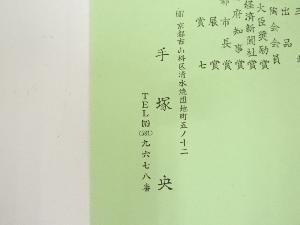 出品
陶会会員
大臣奨励賞
経済新聞社賞
府知事賞
都市長賞
展賞七
京都市山科区清水焼団地町五ノ十二
手塚央
TEL(075)(581)九六七八番